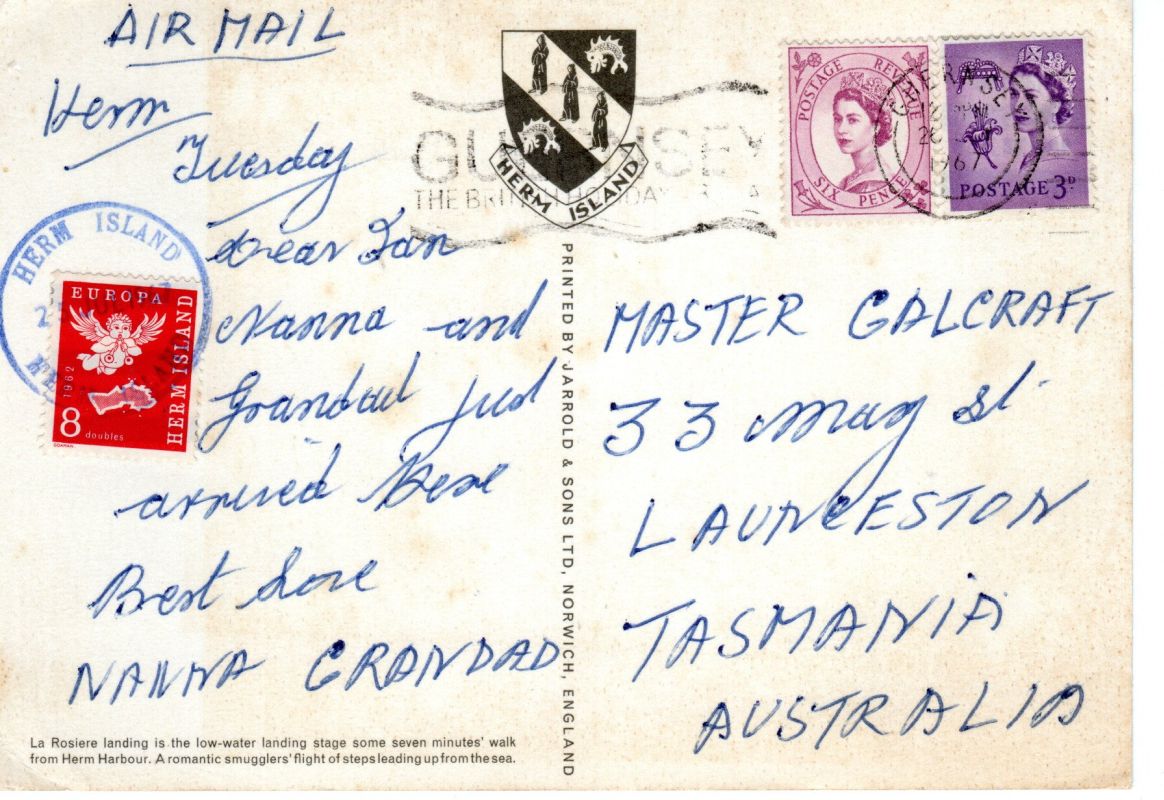 AIR MAIL
Herm
Tuesday
Dear Ian
Nanna and
Grandad just
arrived Here
Best Love
NANNA GRANDAD
La Rosiere landing is the low-water landing stage some seven minutes' walk
from Herm Harbour. A romantic smugglers' flight of steps leading up from the sea.
HERM ISLAND
EUROPA
1962
HERM ISLAND
8 doubles
HERM ISLAND
PRINTED BY JARROLD & SONS LTD, NORWICH, ENGLAND
GUERNSEY
THE BRITISH HOLIDAY
POSTAGE REVENUE
SIX PENCE
GUERNSEY
1967
POSTAGE 3D
MASTER GALCRAFT
33 May St
LAUNCESTON
TASMANIA
AUSTRALIA